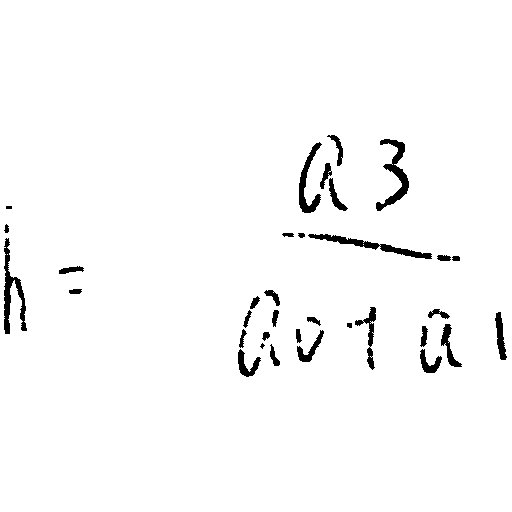 h = \frac{a_3}{a_0 + a_1}